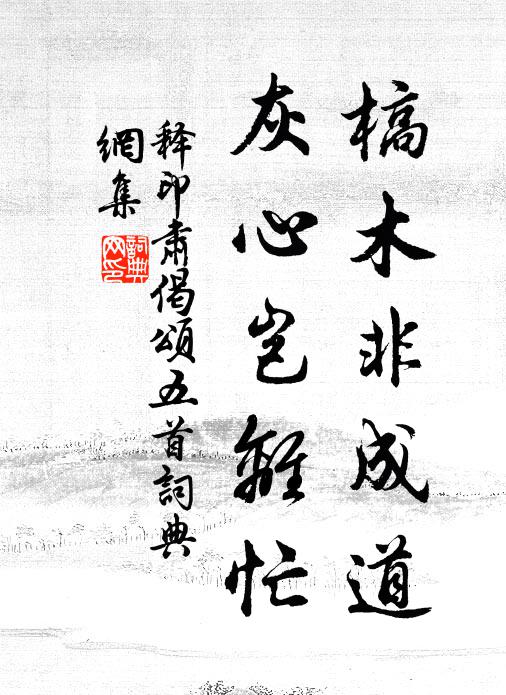 槁木非成道
灰心岂離忙
释印肃偈頌五首詞典
網集
詞典
网印